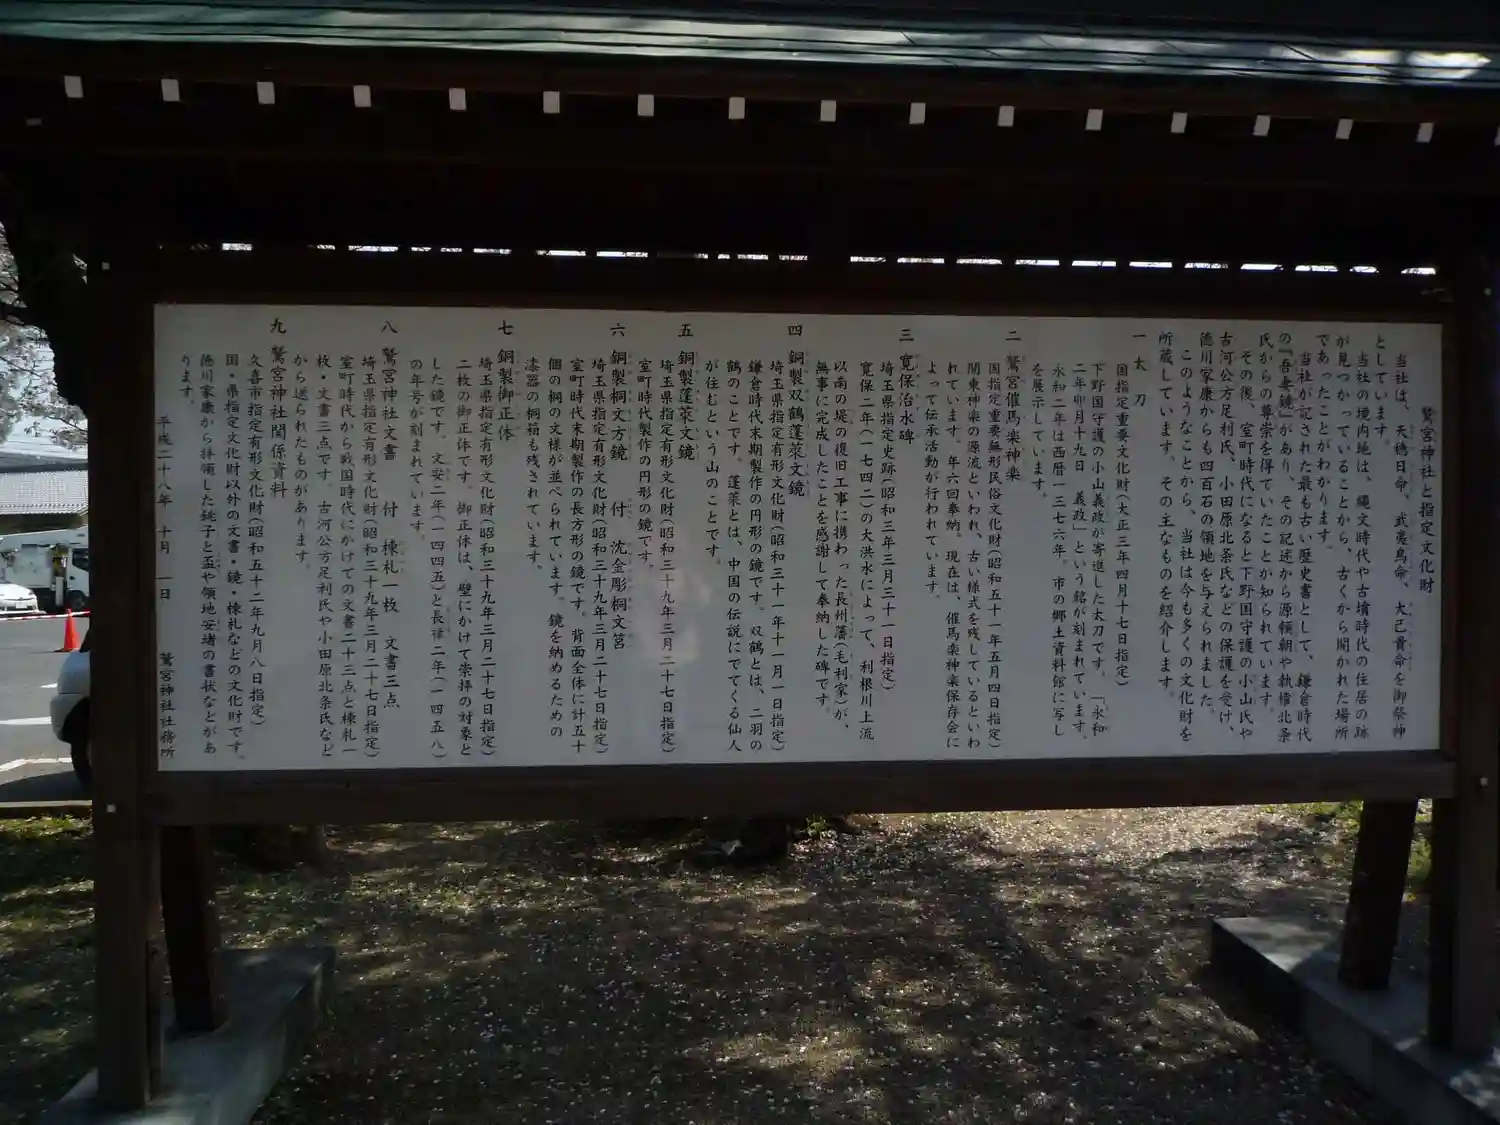 鷲宮神社と指定文化財
当社は、天穂日命、武夷鳥命、大己貴命を御祭神
としています。
当社の境内地は、縄文時代や古墳時代の住居の跡
が見つかっていることから、古くから開かれた場所
であったことがわかります。
当社が記された最も古い歴史書として、鎌倉時代
の『吾妻鏡』があり、その記述から源頼朝や執権北条
氏からの尊崇を得ていたことが知られています。
その後、室町時代になると下野国守護の小山氏や
古河公方足利氏、小田原北条氏などの保護を受け、
徳川家康からも四百石の領地を与えられました。
このようなことから、当社は今も多くの文化財を
所蔵しています。その主なものを紹介します。
一 太 刀
国指定重要文化財(大正三年四月十七日指定)
下野国守護の小山義政が寄進した太刀です。「永和
二年卯月十九日 義政」という銘が刻まれています。
永和二年は西暦一三七六年。市の郷土資料館に写し
を展示しています。
二 鷲宮催馬楽神楽
国指定重要無形民俗文化財(昭和五十一年五月四日指定)
関東神楽の源流といわれ、古い様式を残しているといわ
れています。年六回奉納。現在は、催馬楽神楽保存会に
よって伝承活動が行われています。
三 寛保治水碑
埼玉県指定史跡(昭和三年三月三十一日指定)
寛保二年(一七四二)の大洪水によって、利根川上流
以南の堤の復旧工事に携わった長州藩(毛利家)が、
無事に完成したことを感謝して奉納した碑です。
四 銅製双鶴蓬萊文鏡
埼玉県指定有形文化財(昭和三十一年十一月一日指定)
鎌倉時代末期製作の円形の鏡です。双鶴とは、二羽の
鶴のことです。蓬萊とは、中国の伝説にでてくる仙人
が住むという山のことです。
五 銅製蓬萊文鏡
埼玉県指定有形文化財(昭和三十九年三月二十七日指定)
室町時代製作の円形の鏡です。
六 銅製桐文方鏡 付 沈金彫桐文筥
埼玉県指定有形文化財(昭和三十九年三月二十七日指定)
室町時代末期製作の長方形の鏡です。背面全体に計五十
個の桐の文様が並べられています。鏡を納めるための
漆器の桐箱も残されています。
七 銅製御正体
埼玉県指定有形文化財(昭和三十九年三月二十七日指定)
二枚の御正体です。御正体は、壁にかけて崇拝の対象と
した鏡です。文安二年(一四四五)と長禄二年(一四五八)
の年号が刻まれています。
八 鷲宮神社文書 付 棟札一枚 文書三点
埼玉県指定有形文化財(昭和三十九年三月二十七日指定)
室町時代から戦国時代にかけての文書二十三点と棟札一
枚・文書三点です。古河公方足利氏や小田原北条氏など
から送られたものがあります。
九 鷲宮神社関係資料
久喜市指定有形文化財(昭和五十二年九月八日指定)
国・県指定文化財以外の文書・鏡・棟札などの文化財です。
徳川家康から拝領した銚子と盃や領地安堵の書状などがあ
ります。
平成二十八年 十月 一日 鷲宮神社社務所